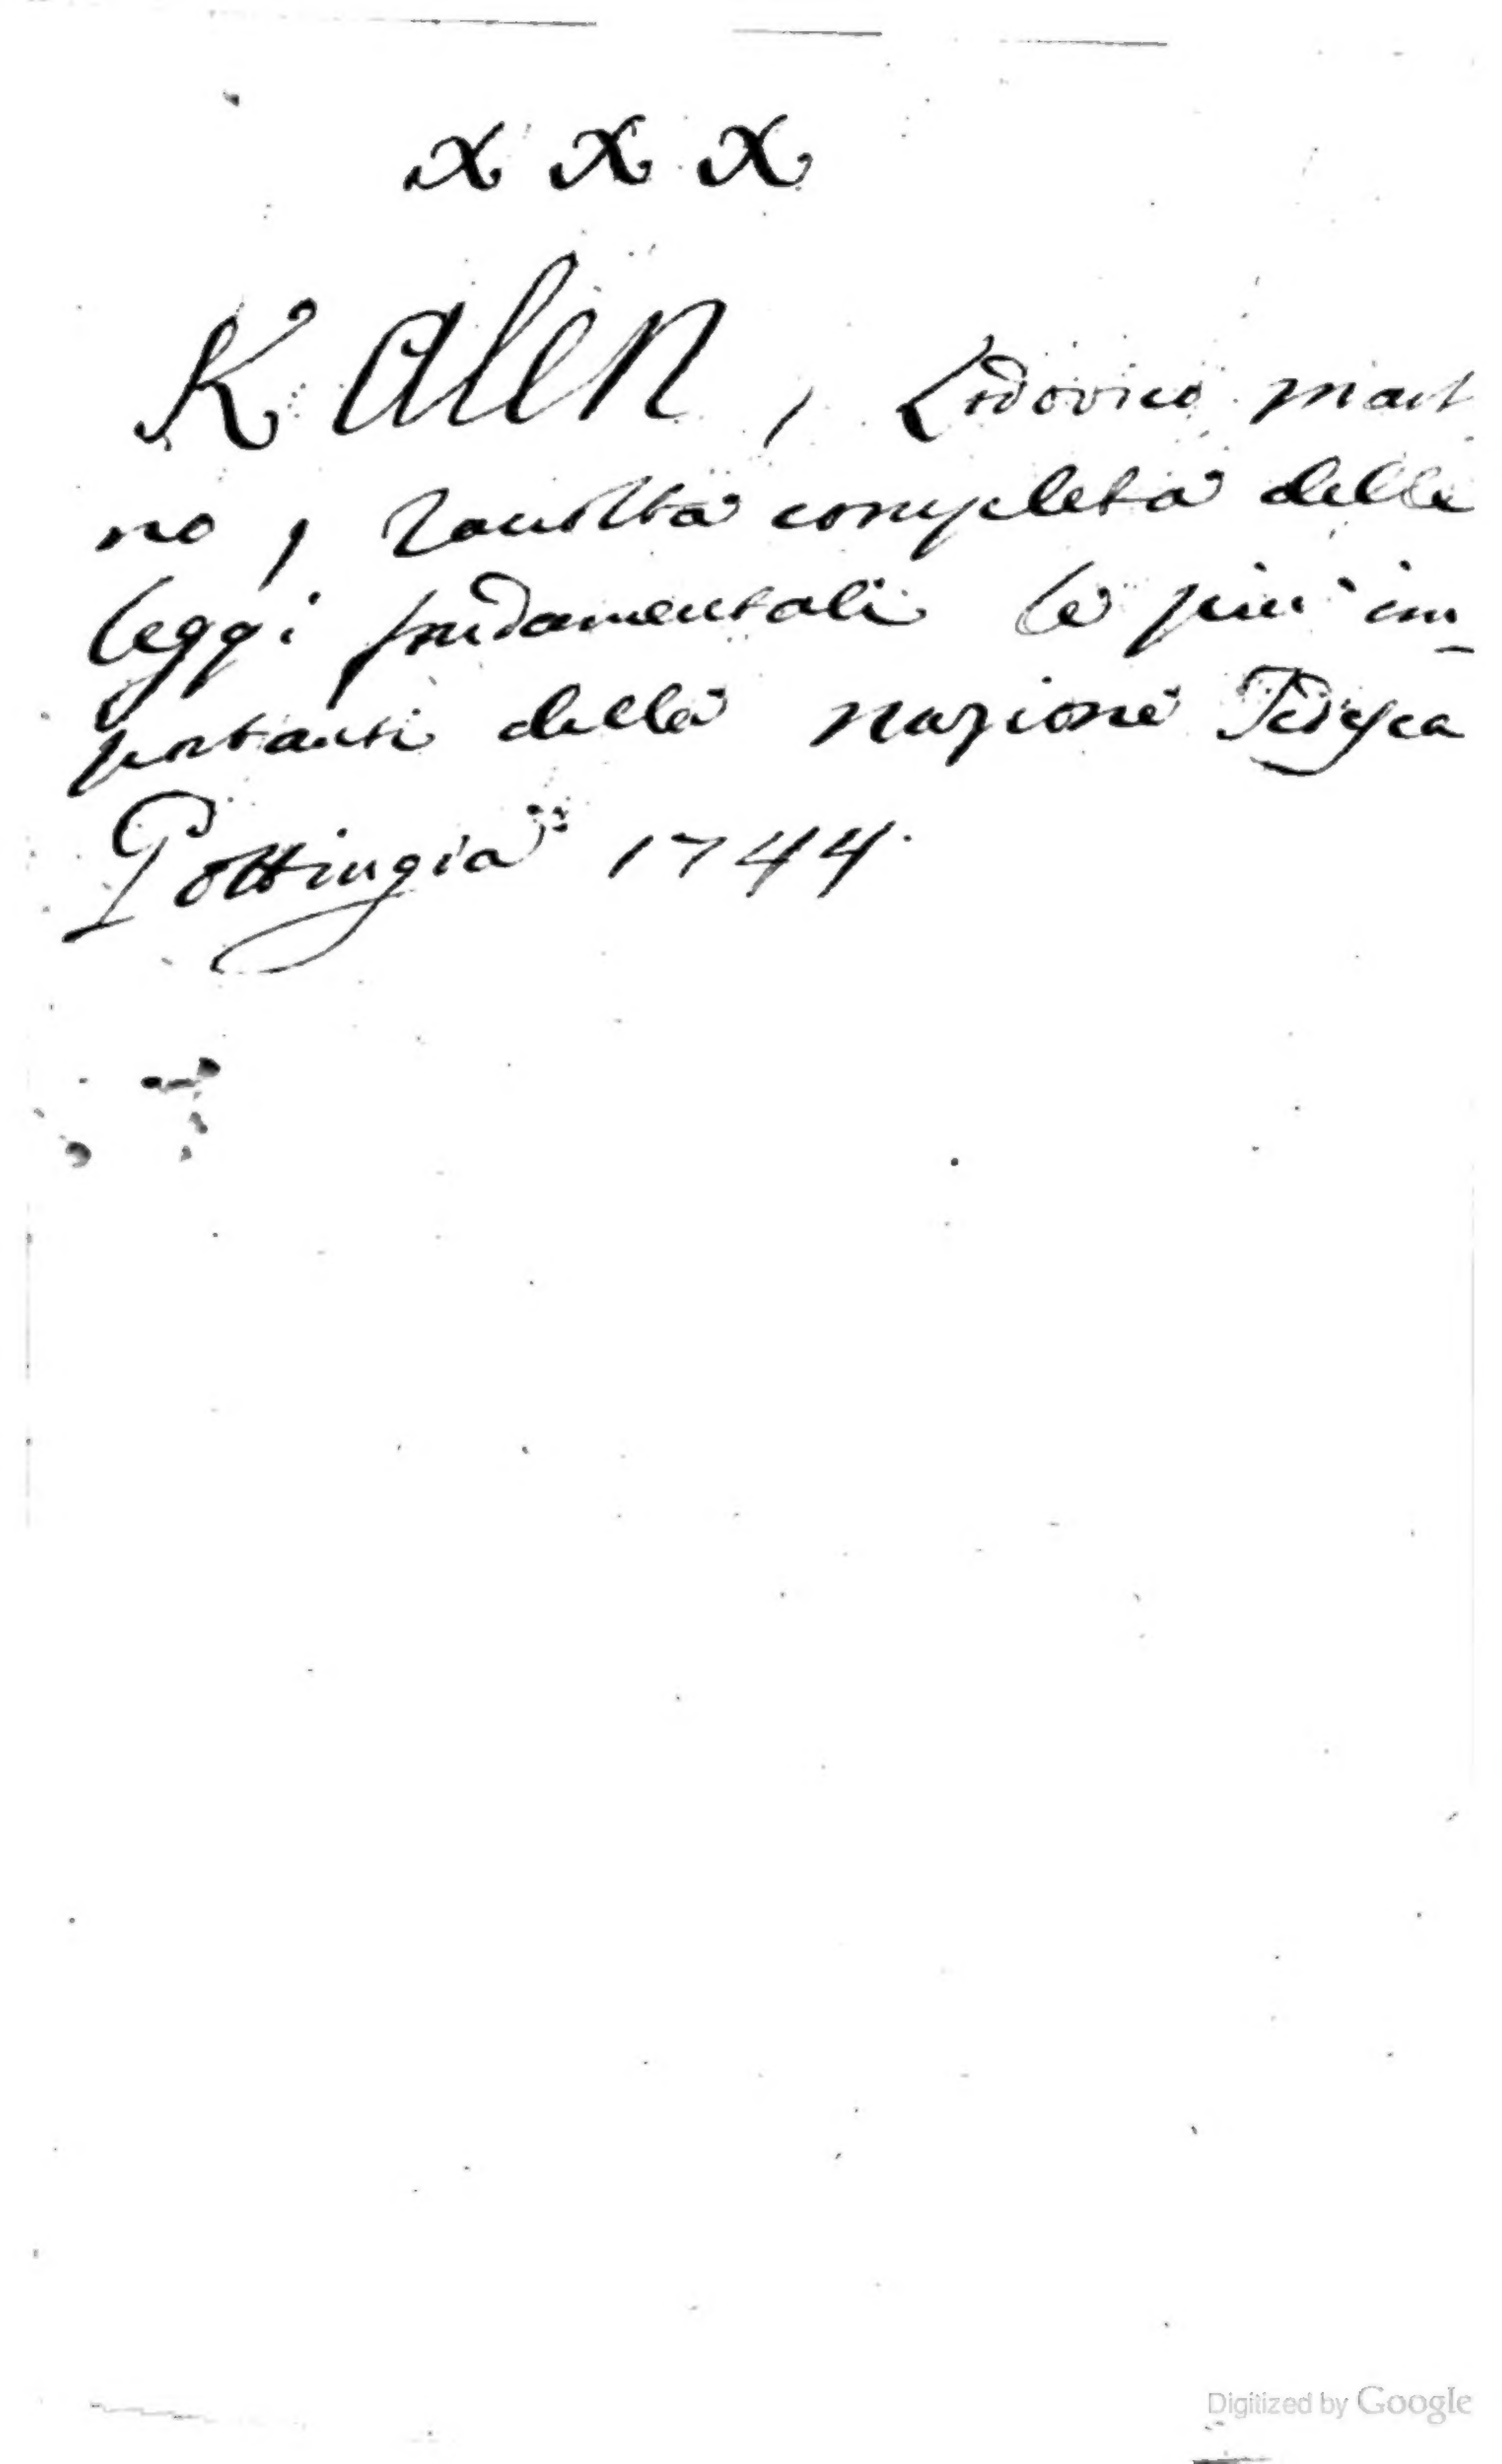 x x x
Kalen, Lodovico mart
no, Racolta completa delle
leggi fondamentali le piu im_
portanti della nazione Tedesca
Gottingia 1744.
Digitized by Google